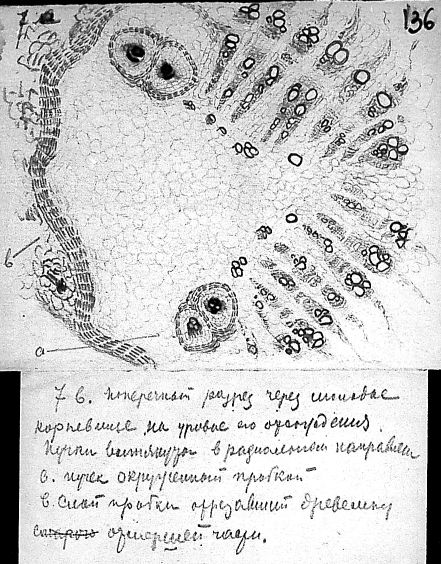 7 а
136
в
а
7 в. поперечный разрез через молодое
корневище на уровне его отхождения.
Пучки вытянуты в радиальном направлен
а. пучек окруженный пробкой
в. слой пробки отрезавший древесину
старую отмершей части.